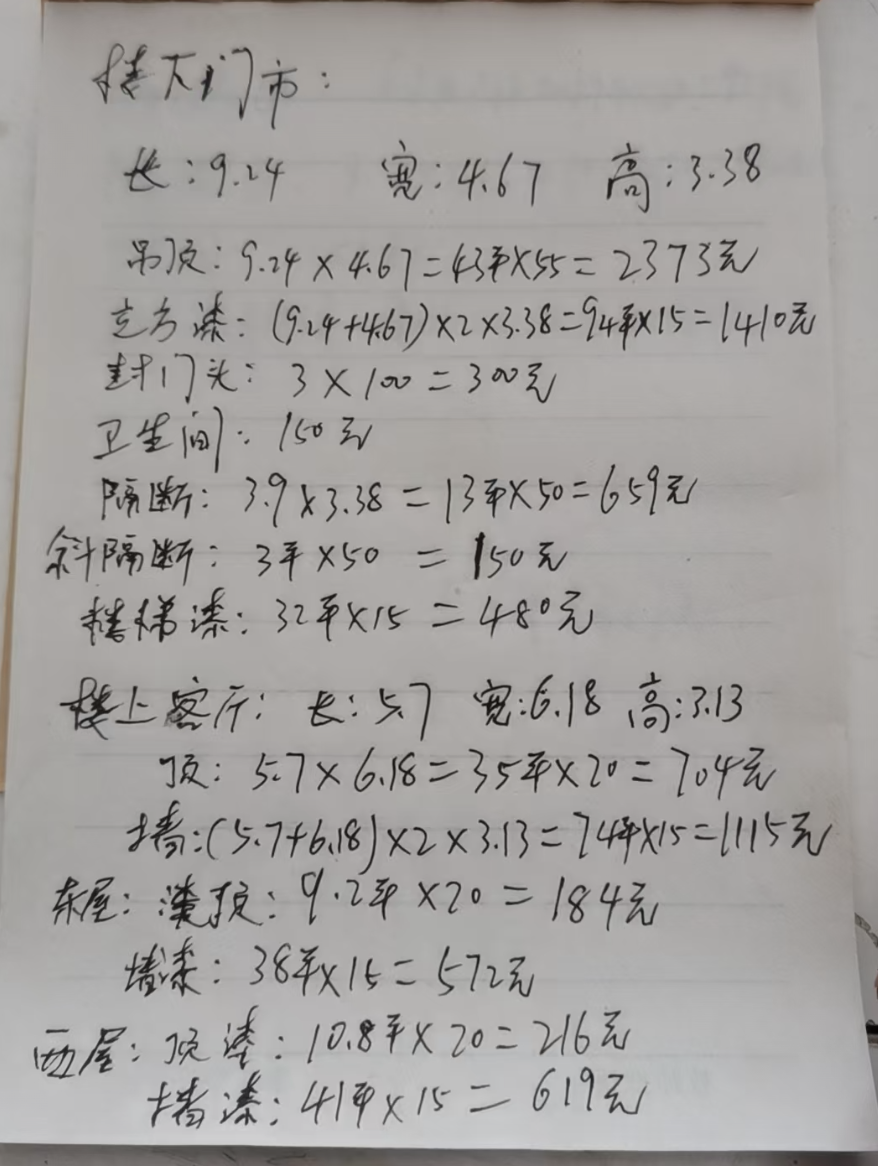 楼下门市:
长:9.24 宽:4.67 高:3.38
吊顶:9.24×4.67=43平×55=2373元
立方漆:(9.24+4.67)×2×3.38=94平×15=1410元
封门头:3×100=300元
卫生间:150元
隔断:3.9×3.38=13平×50=659元
斜隔断:3平×50=150元
楼梯漆:32平×15=480元
楼上客厅:长:5.7 宽:6.18 高:3.13
顶:5.7×6.18=35平×20=704元
墙:(5.7+6.18)×2×3.13=74平×15=1115元
东屋:漆顶:9.2平×20=184元
墙漆:38平×15=572元
西屋:顶漆:10.8平×20=216元
墙漆:41平×15=619元